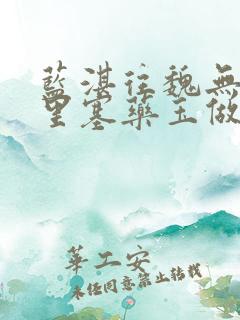 藍湛往魏無
里塞藥玉做
華工安
未經同意禁止轉載